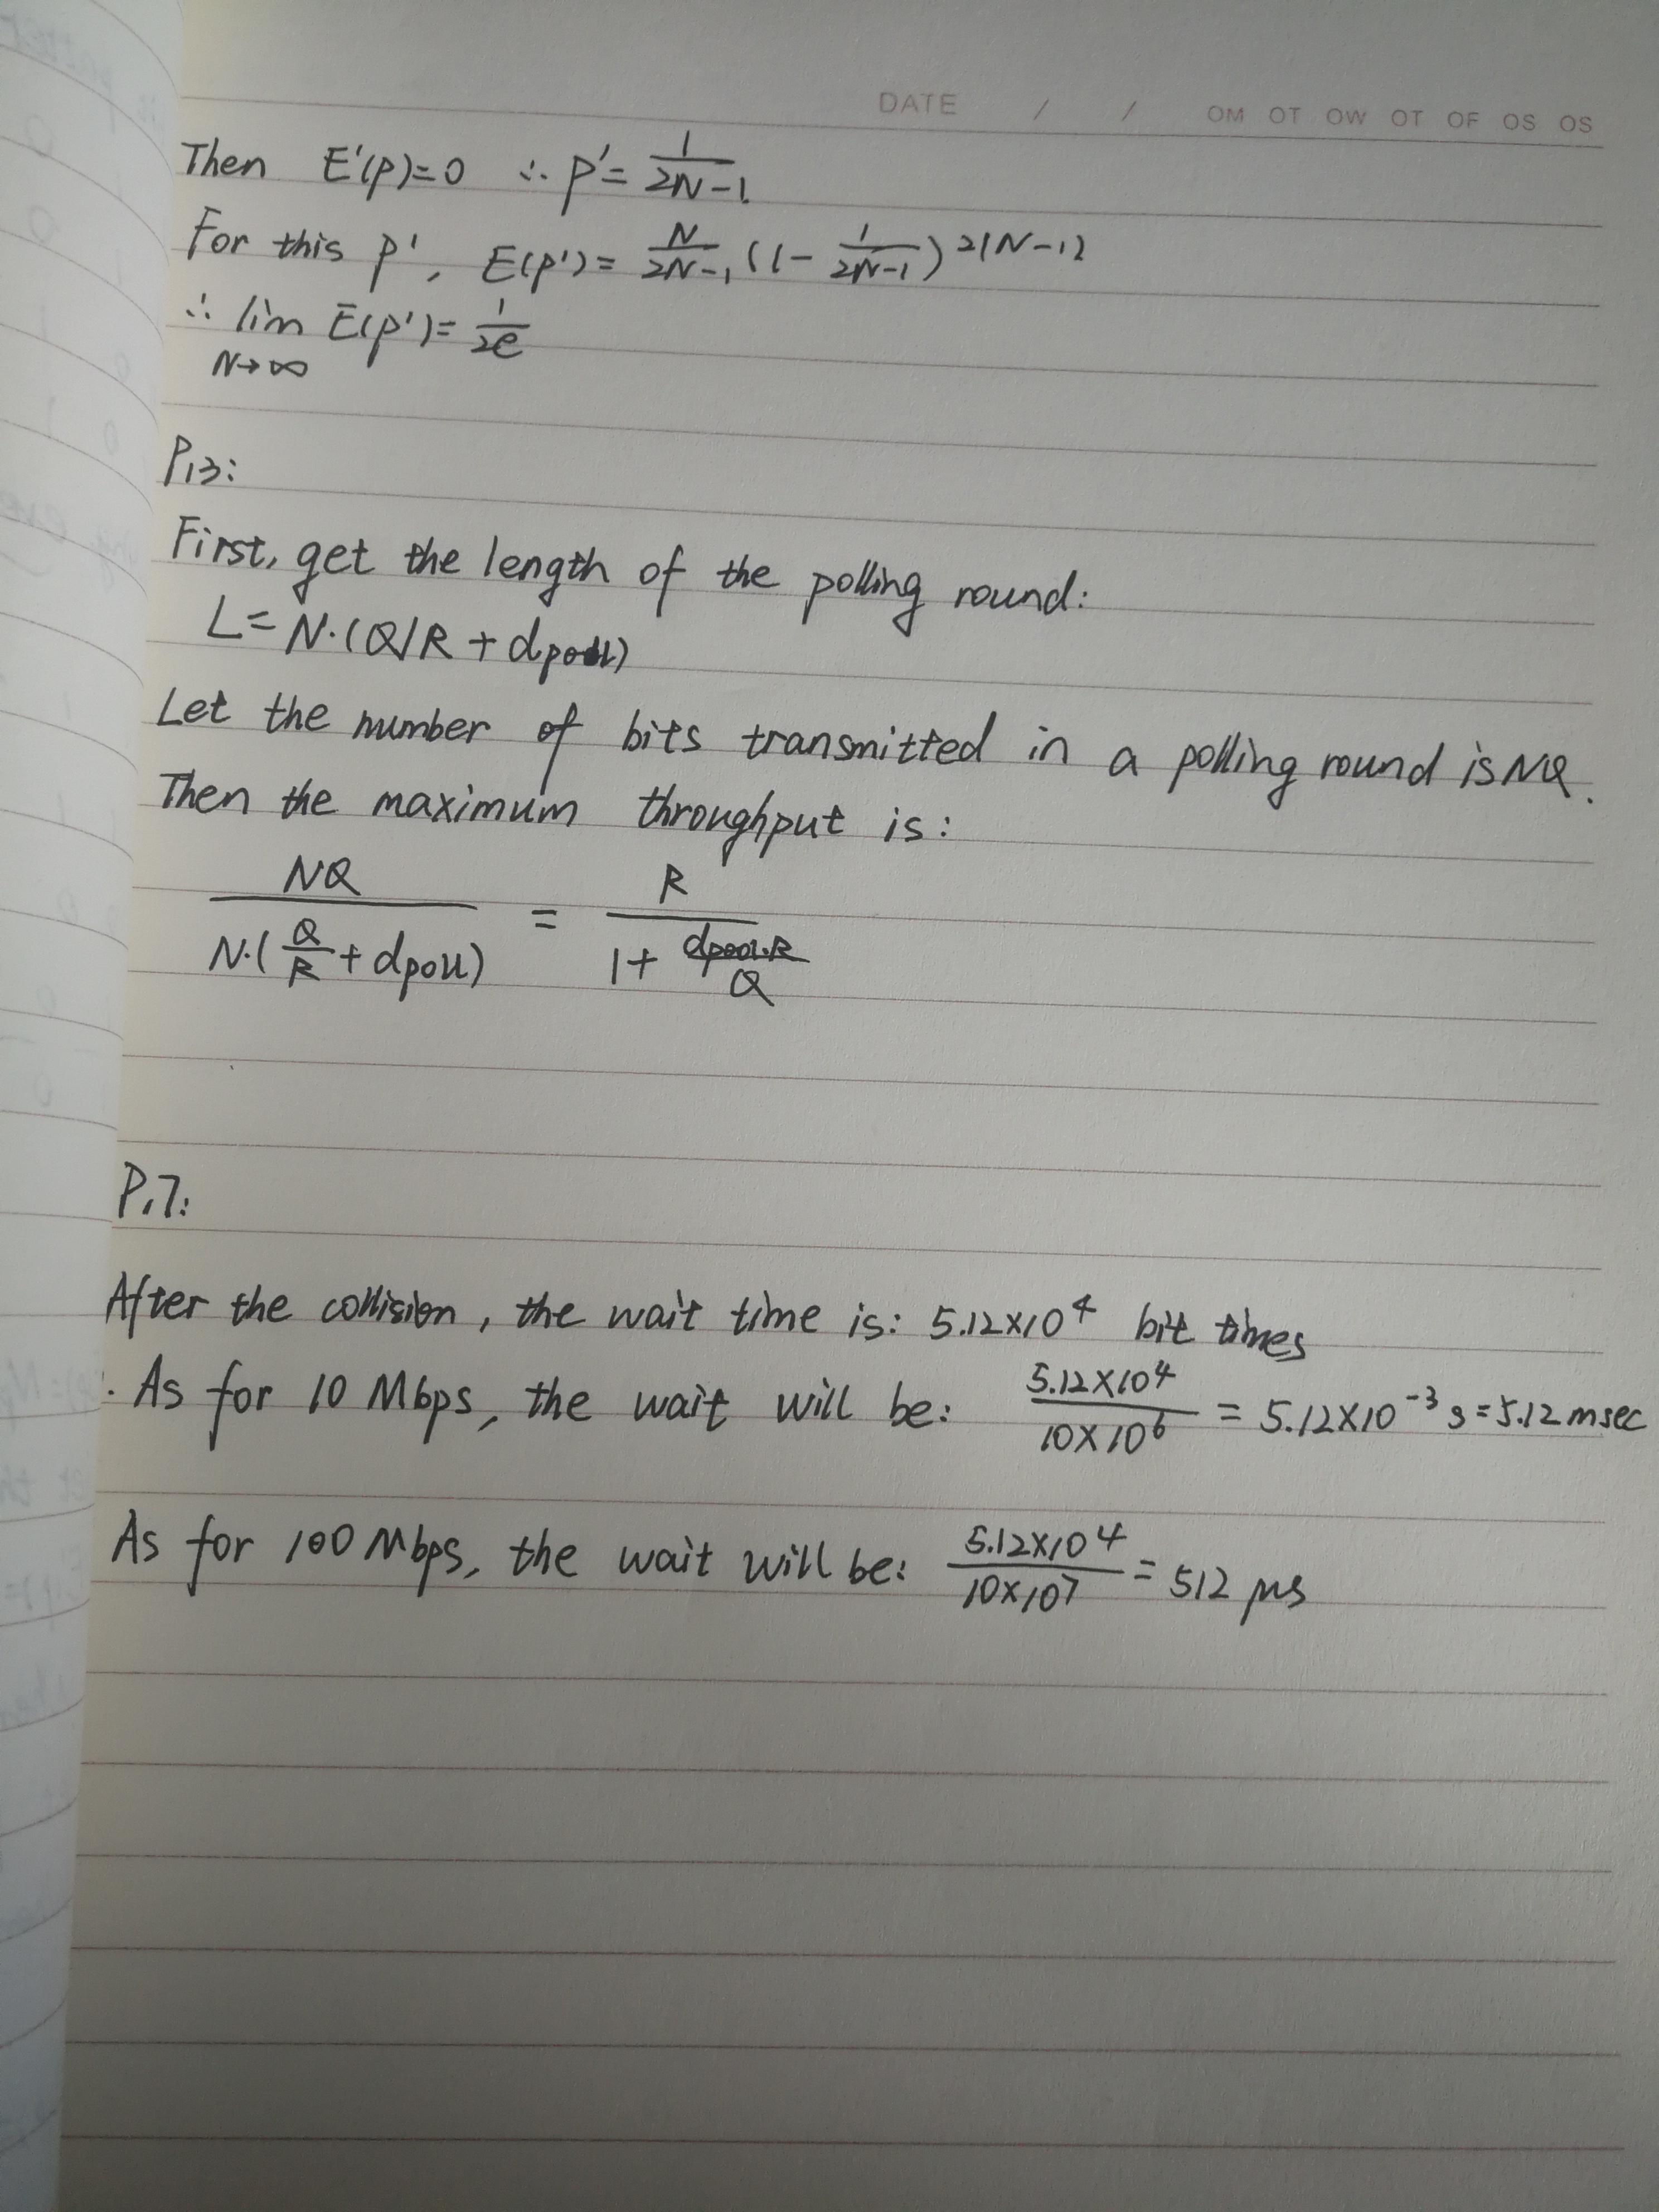 DATE / / OM OT OW OT OF OS OS
Then E'(p)=0 ∴ p'= 1/(2N-1)
For this p', E(p')= N/(2N-1) (1- 1/(2N-1))^2(N-1)
∴ lim N→∞ E(p')= 1/2e
P13:
First, get the length of the polling round:
L=N·(Q/R + dpoll)
Let the number of bits transmitted in a polling round is NQ.
Then the maximum throughput is:
NQ / (N·(Q/R + dpoll)) = R / (1+ dpoll·R/Q)
P17:
After the collision, the wait time is: 5.12×10^4 bit times
. As for 10 Mbps, the wait will be: 5.12×10^4 / 10×10^6 = 5.12×10^-3 s=5.12 msec
As for 100 Mbps, the wait will be: 5.12×10^4 / 10×10^7 = 512 μs